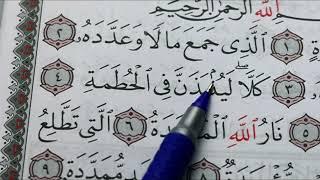 اللهِ الرَّحْمٰنِ الرَّحِيمِ
١ الَّذِي جَمَعَ مَالًا وَعَدَّدَهُ ٢
٣ كَلَّا لَيُنۢبَذَنَّ فِي الْحُطَمَةِ ٤
٥ نَارُ اللهِ ٦ الَّتِي تَطَّلِعُ
مُمَدَّدَةٍ ٩